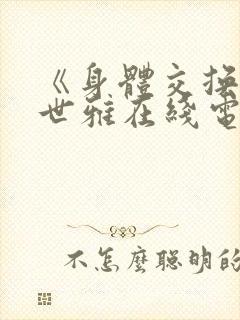 《身體交換
世雅在綫電
不怎麼聰明的